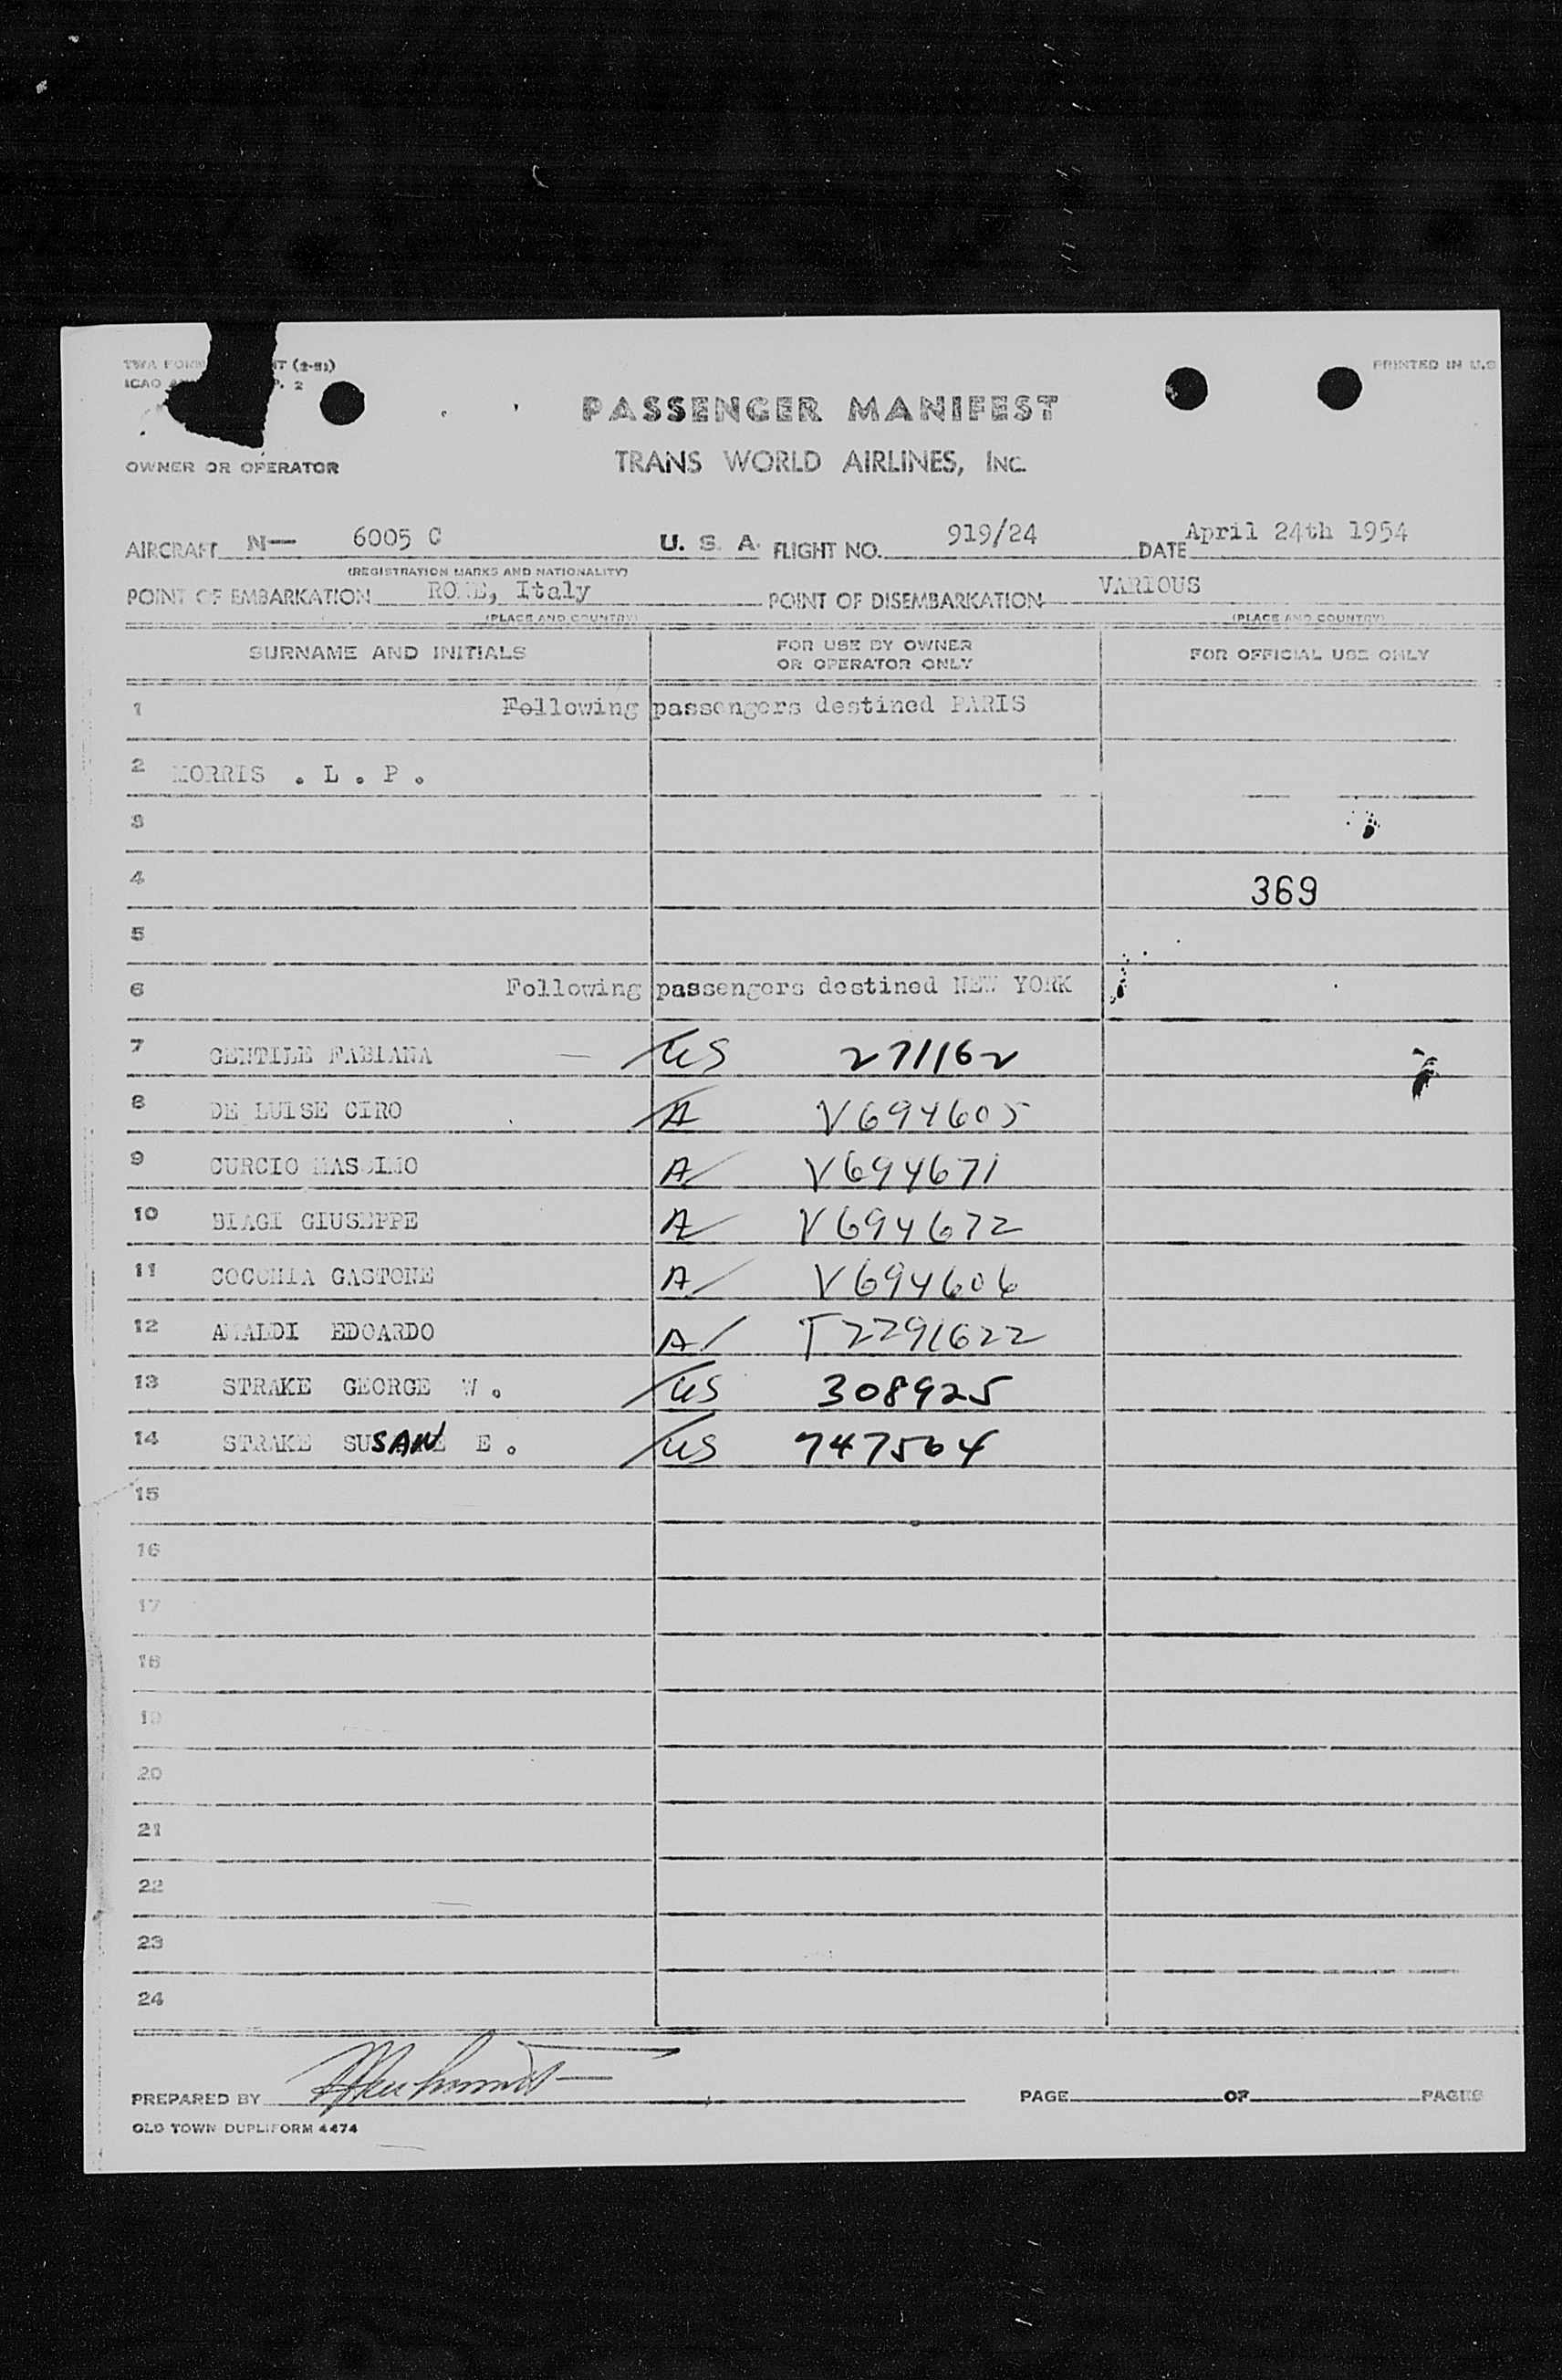 TWA FORM T (2-51)
PRINTED IN U.S
ICAO P. 2
PASSENGER MANIFEST
OWNER OR OPERATOR
TRANS WORLD AIRLINES, INC.
AIRCRAFT N— 6005 C U. S. A. FLIGHT NO. 919/24 DATE April 24th 1954
(REGISTRATION MARKS AND NATIONALITY)
POINT OF EMBARKATION ROME, Italy POINT OF DISEMBARKATION VARIOUS
(PLACE AND COUNTRY) (PLACE AND COUNTRY)
SURNAME AND INITIALS FOR USE BY OWNER OR OPERATOR ONLY FOR OFFICIAL USE ONLY
1 Following passengers destined PARIS
2 MORRIS . L . P .
3
4 369
5
6 Following passengers destined NEW YORK
7 GENTILE FABIANA US 271162
8 DE LUISE CIRO A V694605
9 CURCIO MASSIMO A V694671
10 BIAGI GIUSEPPE A V694672
11 COCCHIA GASTONE A V694606
12 AMALDI EDOARDO A T2291622
13 STRAKE GEORGE W . US 308925
14 STRAKE SUSAN E . US 747564
15
16
17
18
19
20
21
22
23
24
PREPARED BY PAGE OF PAGES
OLD TOWN DUPLIFORM 4474